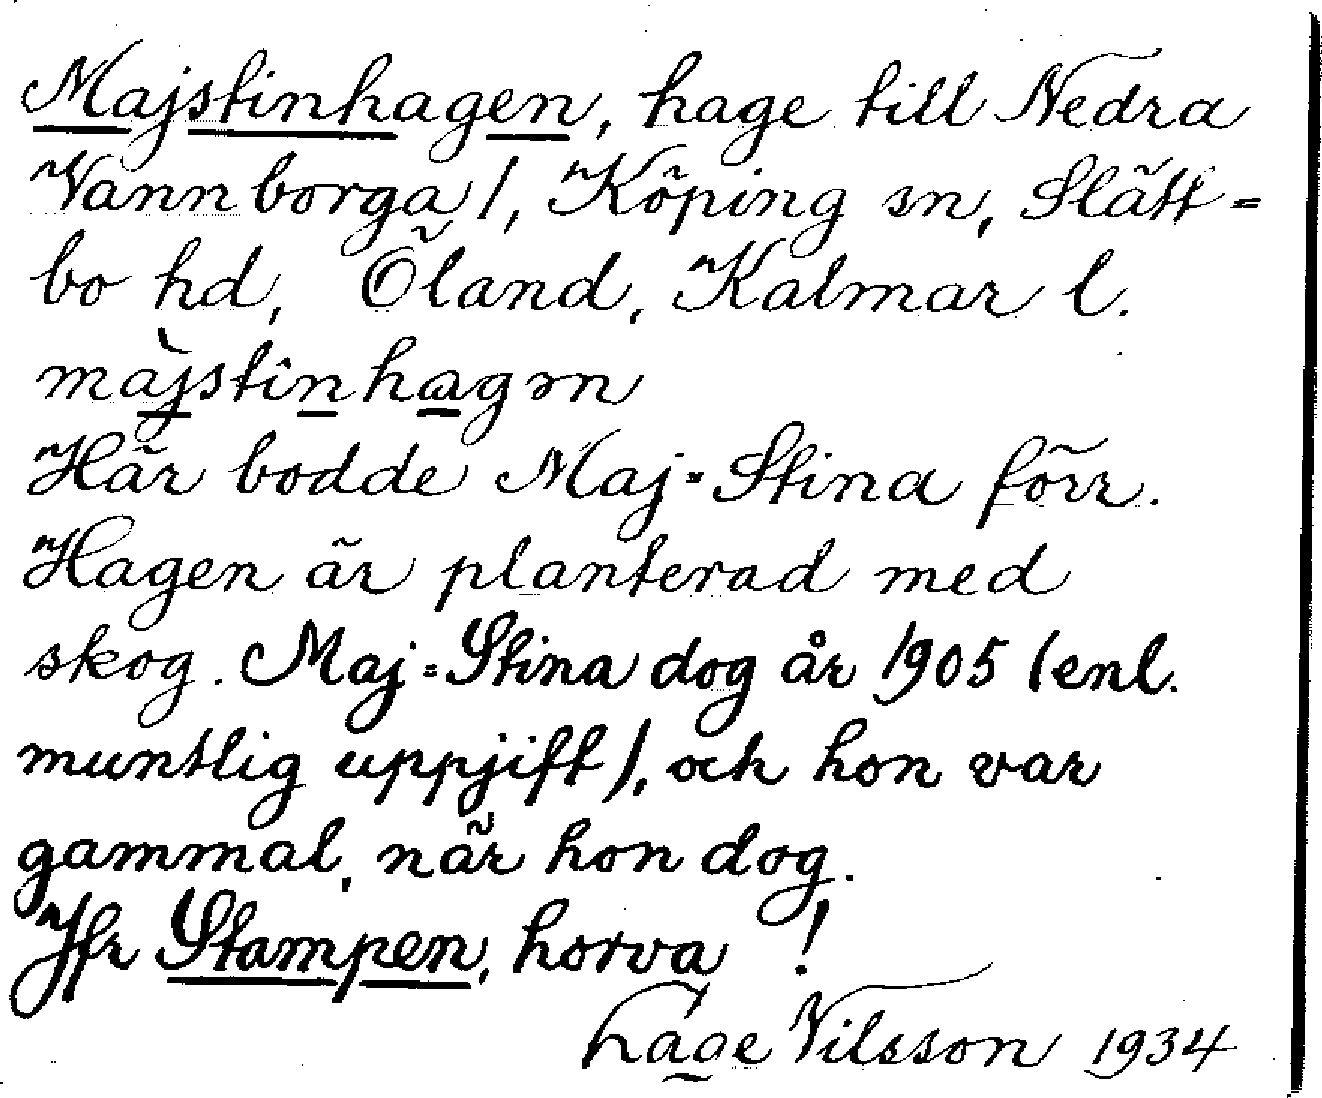 Majstinhagen, hage till Nedra
Vannborga 1, Köping sn, Slätt=
bo hd, Öland, Kalmar l.
màjstînhagən
Här bodde Maj=Stina förr.
Hagen är planterad med
skog. Maj=Stina dog år 1905 (enl.
muntlig uppjift), och hon var
gammal, när hon dog.
Jfr Stampen, horva !
Låge Nilsson 1934